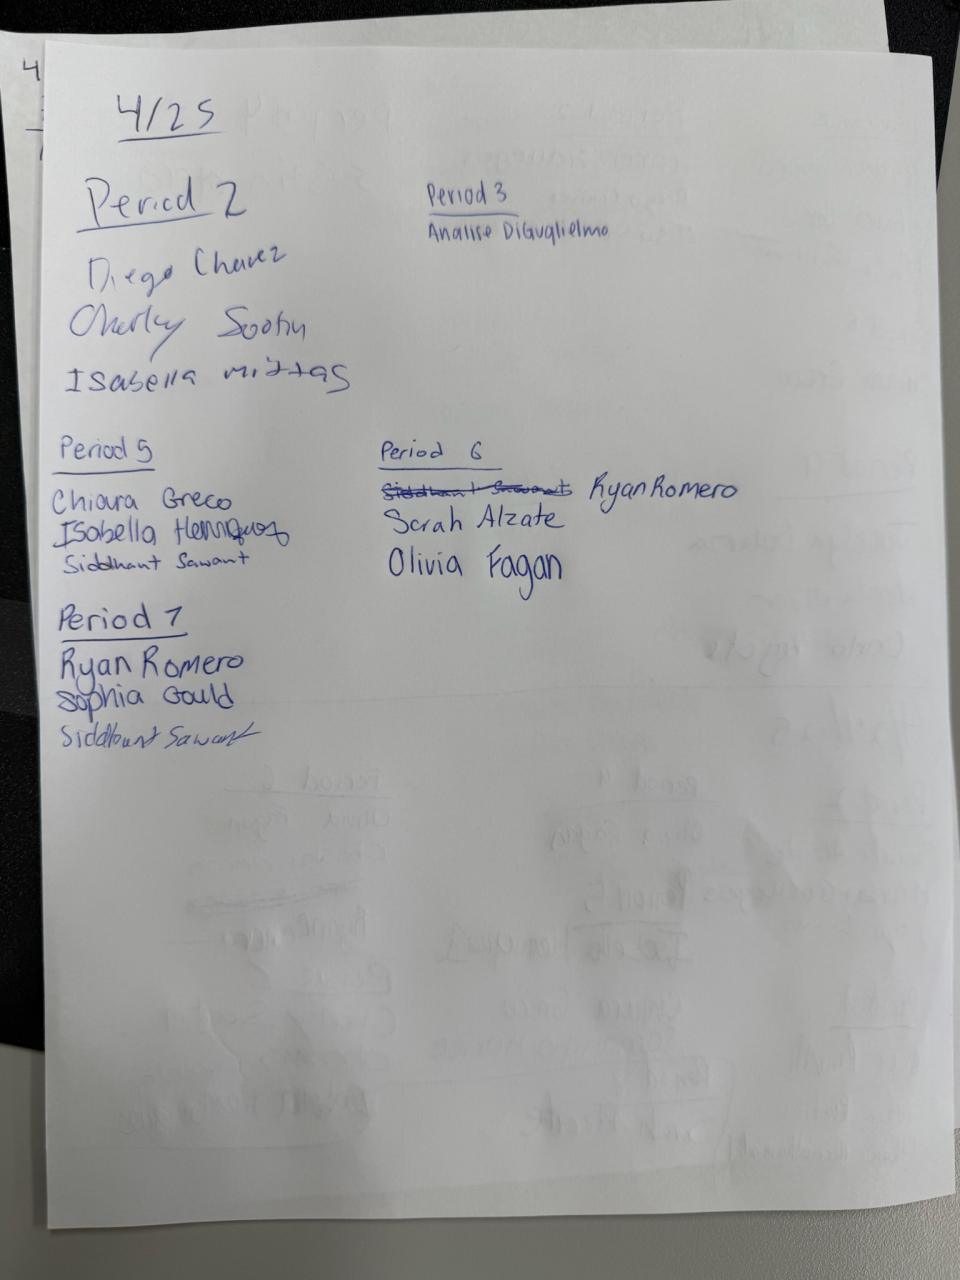 4/25
Period 2
Diego Chavez
Charley
Isabella mittas
Period 3
Analise DiGuglielmo
Period 5
Chiara Greco
Isabella Henriquez
Siddhant Sawant
Period 6
Siddhant Sawant Ryan Romero
Sarah Alzate
Olivia Fagan
Period 7
Ryan Romero
Sophia Gould
Siddhant Sawant